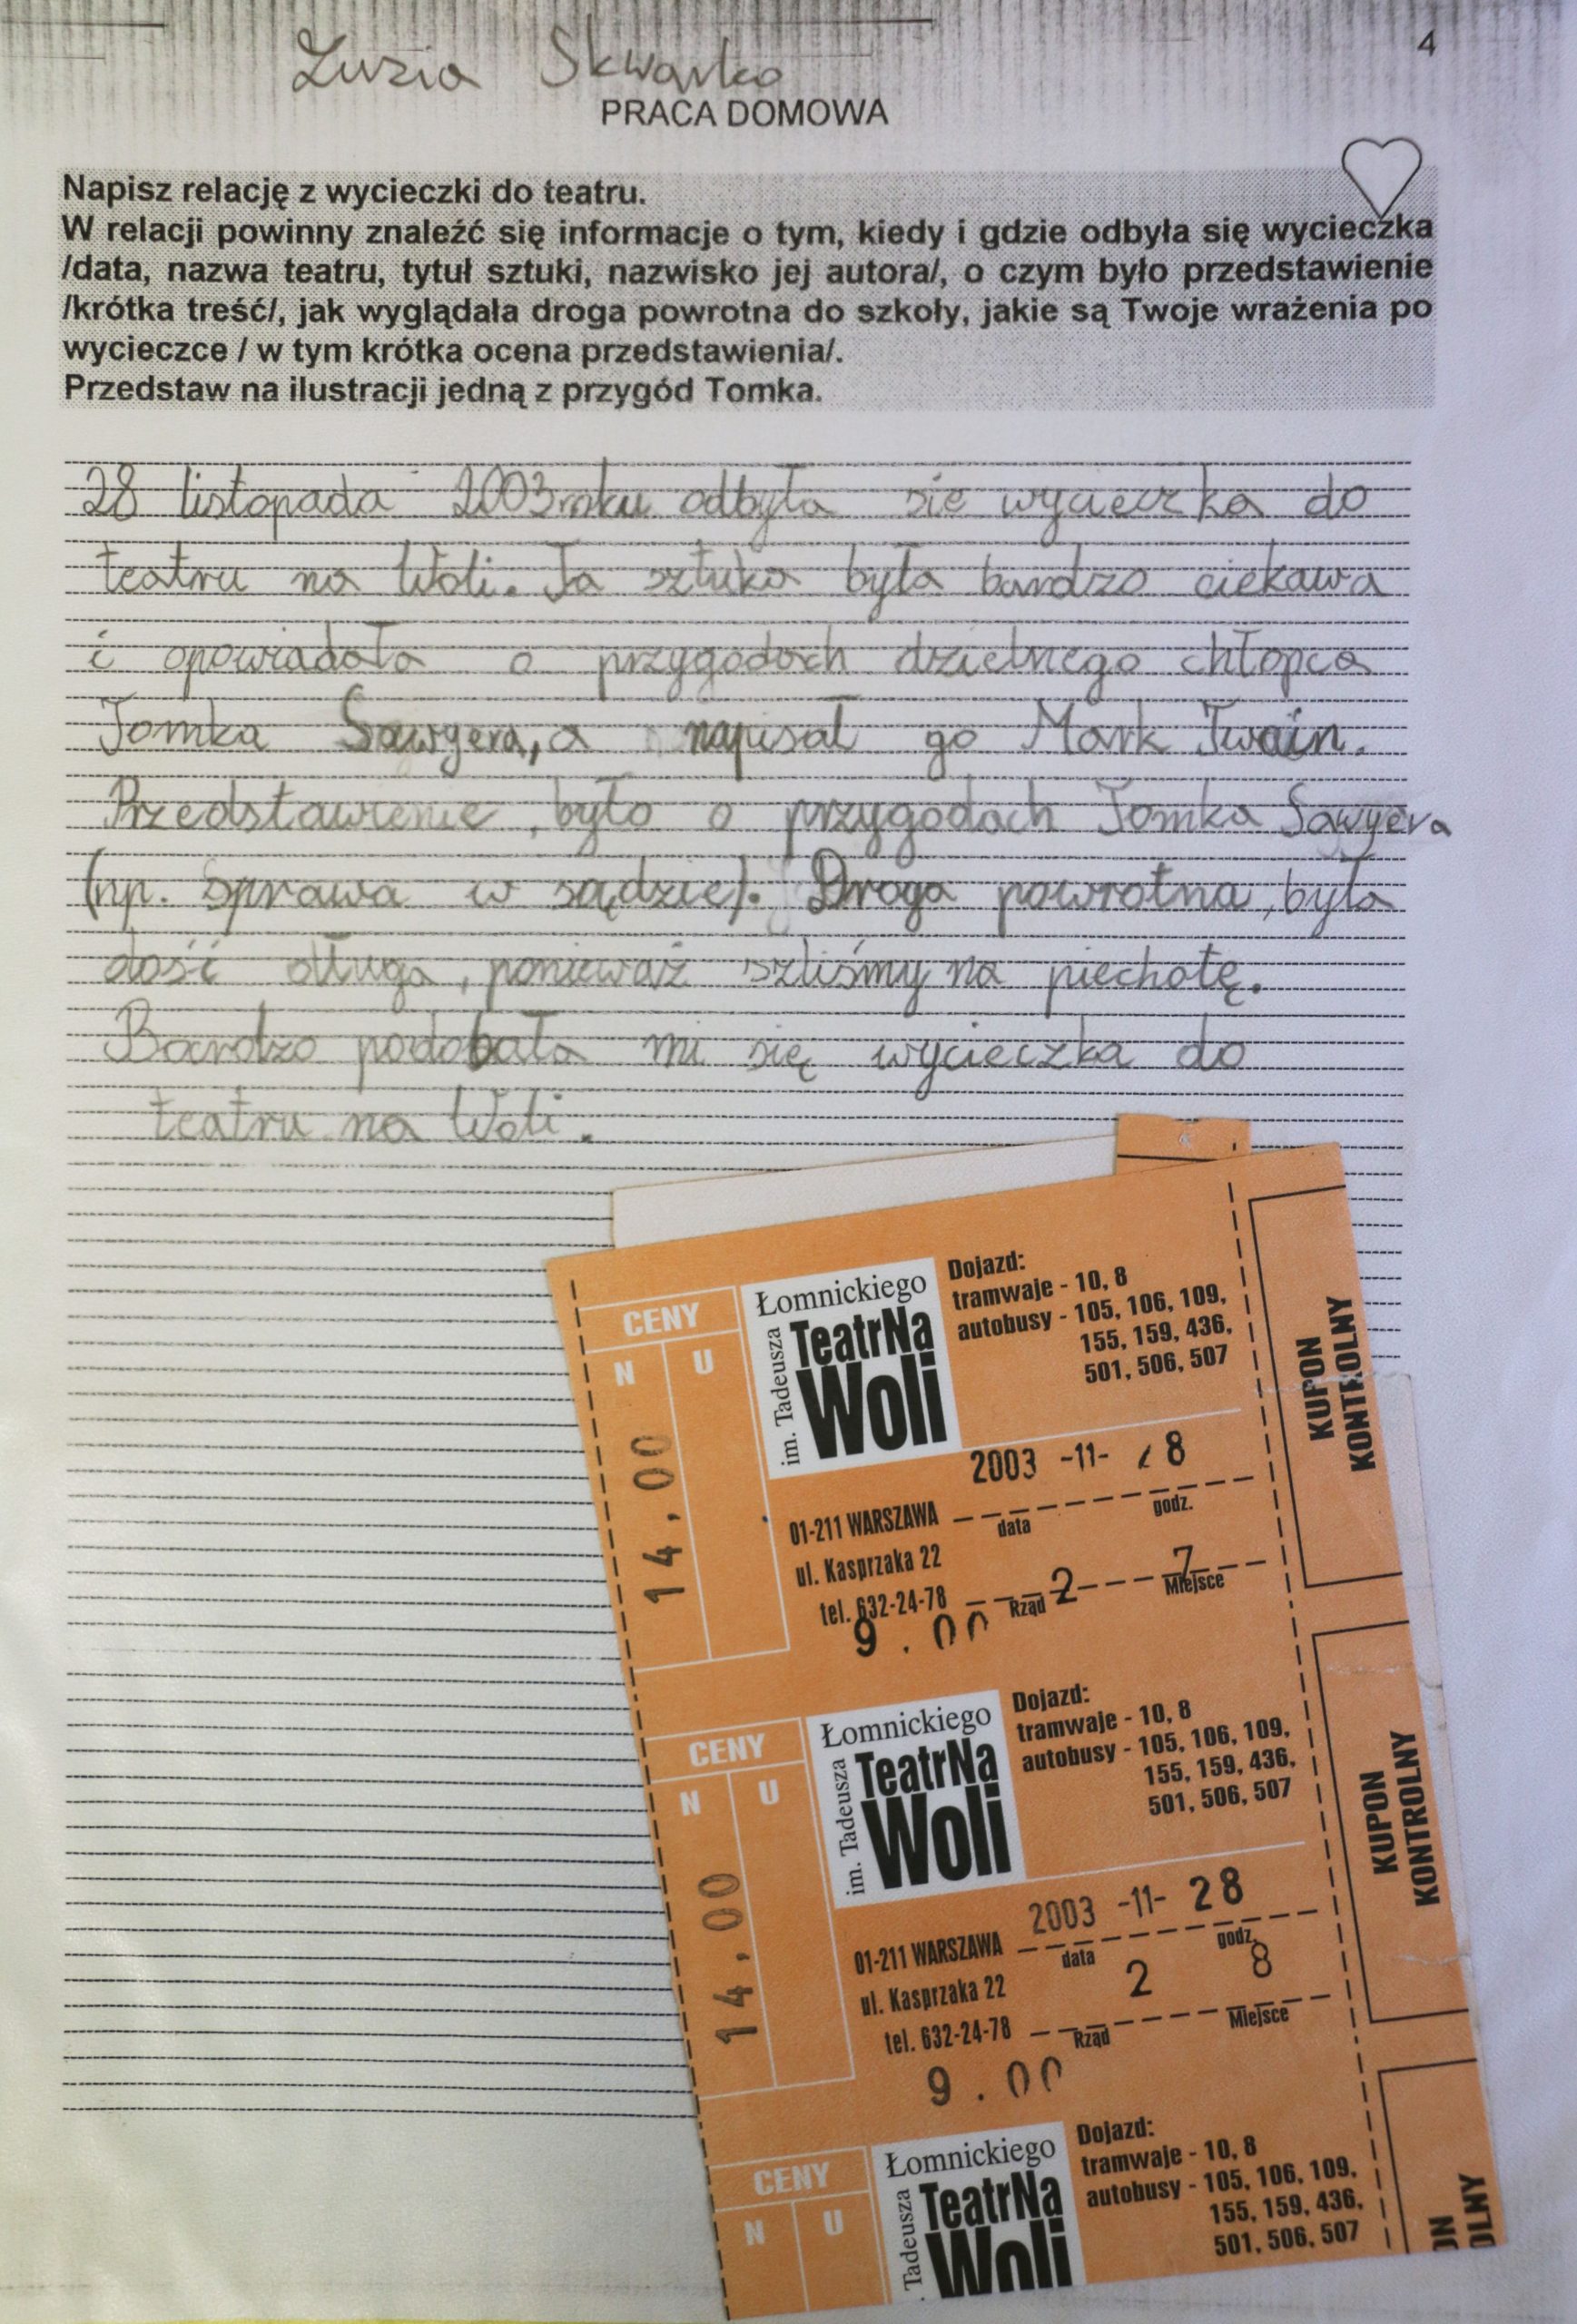 4
Zuzia Skwarko
PRACA DOMOWA
Napisz relację z wycieczki do teatru.
W relacji powinny znaleźć się informacje o tym, kiedy i gdzie odbyła się wycieczka
/data, nazwa teatru, tytuł sztuki, nazwisko jej autora/, o czym było przedstawienie
/krótka treść/, jak wyglądała droga powrotna do szkoły, jakie są Twoje wrażenia po
wycieczce / w tym krótka ocena przedstawienia/.
Przedstaw na ilustracji jedną z przygód Tomka.
28 listopada 2003roku odbyła sie wycieczka do
teatru na Woli. Ta sztuka była bardzo ciekawa
i opowiadała o przygodach dzielnego chłopca
Tomka Sawyera, a napisał go Mark Twain.
Przedstawienie, było o przygodach Tomka Sawyera
(np. sprawa w sądzie). Droga powrotna, była
dość długa, ponieważ szliśmy na piechotę.
Bardzo podobała mi się wycieczka do
teatru na Woli.
CENY
N U
14,00
im. Tadeusza
Łomnickiego
TeatrNa
Woli
Dojazd:
tramwaje - 10, 8
autobusy - 105, 106, 109,
155, 159, 436,
501, 506, 507
2003 -11- 8
01-211 WARSZAWA
data godz.
ul. Kasprzaka 22
2 7
tel. 632-24-78 Rząd Miejsce
9.00
KUPON
KONTROLNY
CENY
N U
14,00
im. Tadeusza
Łomnickiego
TeatrNa
Woli
Dojazd:
tramwaje - 10, 8
autobusy - 105, 106, 109,
155, 159, 436,
501, 506, 507
2003 -11- 28
01-211 WARSZAWA
data godz.
ul. Kasprzaka 22
2 8
tel. 632-24-78 Rząd Miejsce
9.00
KUPON
KONTROLNY
CENY
N U
Tadeusza
Łomnickiego
TeatrNa
Woli
Dojazd:
tramwaje - 10, 8
autobusy - 105, 106, 109,
155, 159, 436,
501, 506, 507
ON
OLNY